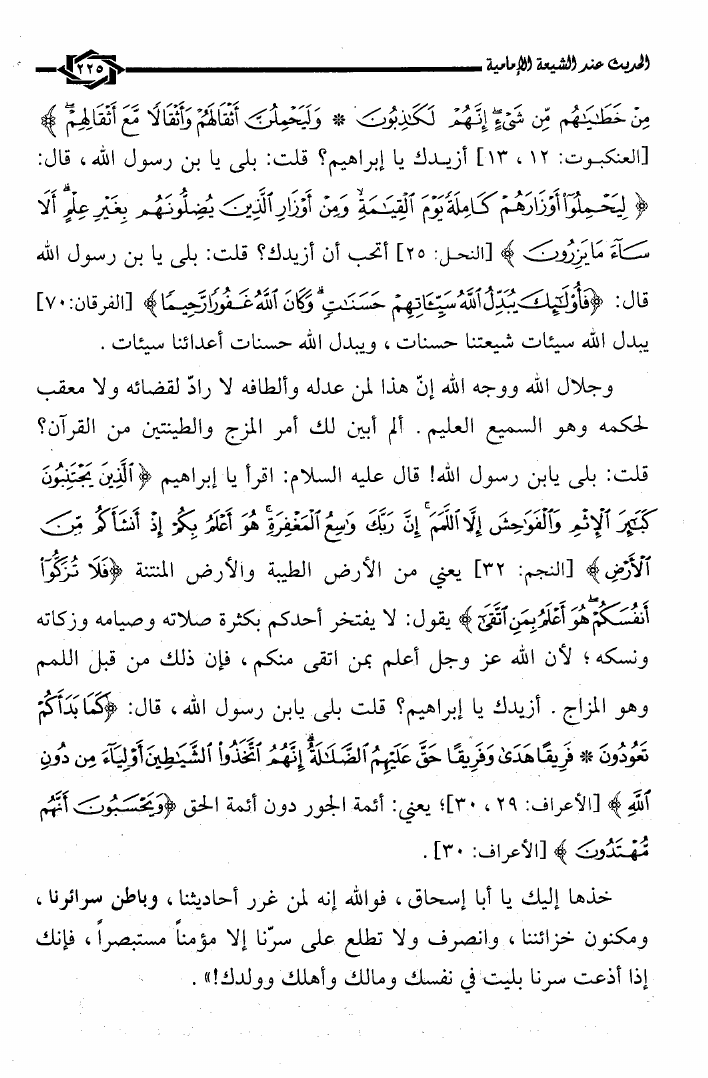 الحديث عند الشيعة الإمامية ٢٢٥
مِنْ خَطَٰيَٰهُم مِّن شَىْءٍ إِنَّهُمْ لَكَٰذِبُونَ * وَلَيَحْمِلُنَّ أَثْقَالَهُمْ وَأَثْقَالًا مَّعَ أَثْقَالِهِمْ ﴾
[العنكبوت: ١٢ ، ١٣] أزيدك يا إبراهيم؟ قلت: بلى يا بن رسول الله ، قال:
﴿ لِيَحْمِلُوٓا۟ أَوْزَارَهُمْ كَامِلَةً يَوْمَ ٱلْقِيَٰمَةِ وَمِنْ أَوْزَارِ ٱلَّذِينَ يُضِلُّونَهُم بِغَيْرِ عِلْمٍ أَلَا
سَآءَ مَا يَزِرُونَ ﴾ [النحل: ٢٥] أتحب أن أزيدك؟ قلت: بلى يا بن رسول الله
قال: ﴿فَأُو۟لَٰٓئِكَ يُبَدِّلُ ٱللَّهُ سَيِّـَٔاتِهِمْ حَسَنَٰتٍ وَكَانَ ٱللَّهُ غَفُورًا رَّحِيمًا﴾ [الفرقان: ٧٠]
يبدل الله سيئات شيعتنا حسنات ، ويبدل الله حسنات أعدائنا سيئات .
وجلال الله ووجه الله إنّ هذا لمن عدله وألطافه لا رادّ لقضائه ولا معقب
لحكمه وهو السميع العليم . ألم أبين لك أمر المزج والطينتين من القرآن؟
قلت: بلى يابن رسول الله! قال عليه السلام: اقرأ يا إبراهيم ﴿ ٱلَّذِينَ يَجْتَنِبُونَ
كَبَٰٓئِرَ ٱلْإِثْمِ وَٱلْفَوَٰحِشَ إِلَّا ٱللَّمَمَ إِنَّ رَبَّكَ وَٰسِعُ ٱلْمَغْفِرَةِ هُوَ أَعْلَمُ بِكُمْ إِذْ أَنشَأَكُم مِّنَ
ٱلْأَرْضِ ﴾ [النجم: ٣٢] يعني من الأرض الطيبة والأرض المنتنة ﴿فَلَا تُزَكُّوٓا۟
أَنفُسَكُمْ هُوَ أَعْلَمُ بِمَنِ ٱتَّقَىٰٓ ﴾ يقول: لا يفتخر أحدكم بكثرة صلاته وصيامه وزكاته
ونسكه ؛ لأن الله عز وجل أعلم بمن اتقى منكم ، فإن ذلك من قبل اللمم
وهو المزاج . أزيدك يا إبراهيم؟ قلت بلى يابن رسول الله ، قال: ﴿كَمَا بَدَأَكُمْ
تَعُودُونَ * فَرِيقًا هَدَىٰ وَفَرِيقًا حَقَّ عَلَيْهِمُ ٱلضَّلَٰلَةُ إِنَّهُمُ ٱتَّخَذُوا۟ ٱلشَّيَٰطِينَ أَوْلِيَآءَ مِن دُونِ
ٱللَّهِ ﴾ [الأعراف: ٢٩ ، ٣٠]؛ يعني: أئمة الجور دون أئمة الحق ﴿وَيَحْسَبُونَ أَنَّهُم
مُّهْتَدُونَ ﴾ [الأعراف: ٣٠] .
خذها إليك يا أبا إسحاق ، فوالله إنه لمن غرر أحاديثنا ، وباطن سرائرنا ،
ومكنون خزائننا ، وانصرف ولا تطلع على سرّنا إلا مؤمناً مستبصراً ، فإنك
إذا أذعت سرنا بليت في نفسك ومالك وأهلك وولدك!» .